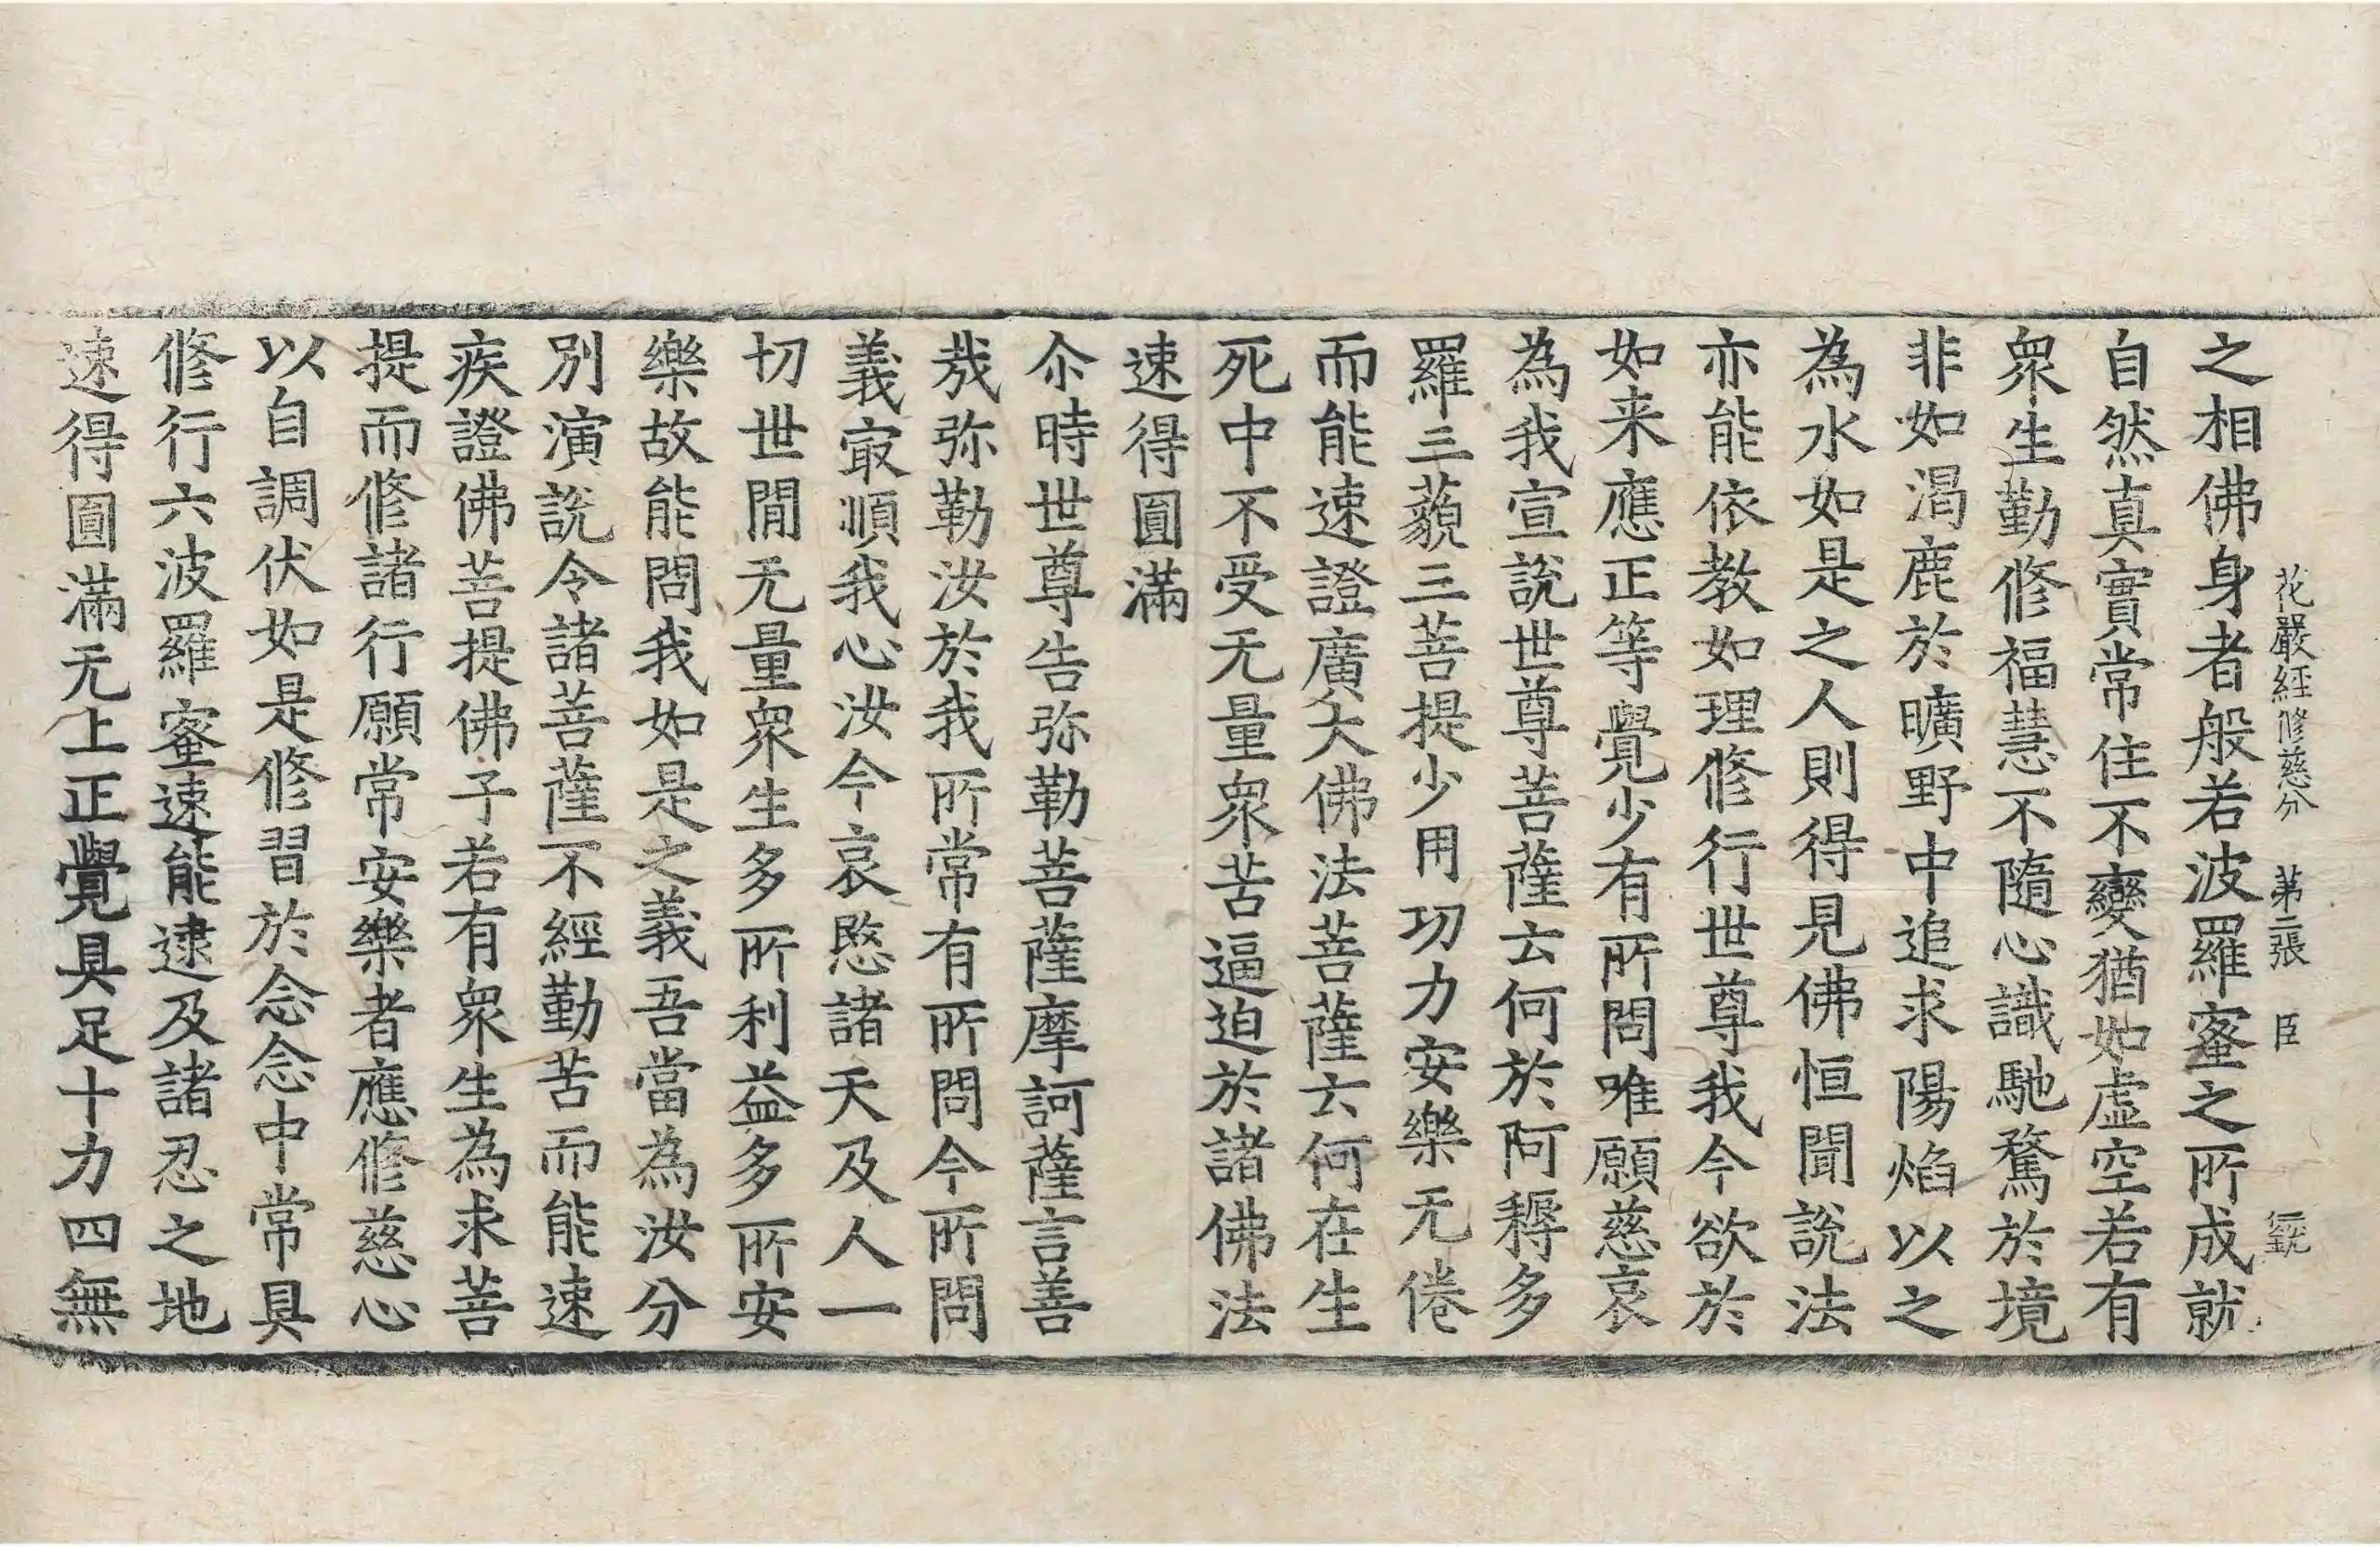 花嚴經修慈分 第二張 臣
之相佛身者般若波羅蜜之所成就
自然真實常住不變猶如虛空若有
衆生勤修福慧不隨心識馳騖於境
非如渴鹿於曠野中追求陽焰以之
為水如是之人則得見佛恒聞說法
亦能依教如理修行世尊我今欲於
如来應正等覺少有所問唯願慈哀
為我宣說世尊菩薩云何於阿耨多
羅三藐三菩提少用功力安樂无倦
而能速證廣大佛法菩薩云何在生
死中不受无量衆苦逼迫於諸佛法
速得圓滿
尒時世尊告弥勒菩薩摩訶薩言善
哉弥勒汝於我所常有所問今所問
義㝡順我心汝今哀愍諸天及人一
切世間无量衆生多所利益多所安
樂故能問我如是之義吾當為汝分
別演說令諸菩薩不經勤苦而能速
疾證佛菩提佛子若有衆生為求菩
提而修諸行願常安樂者應修慈心
以自調伏如是修習於念念中常具
修行六波羅蜜速能逮及諸忍之地
速得圓滿无上正覺具足十力四無